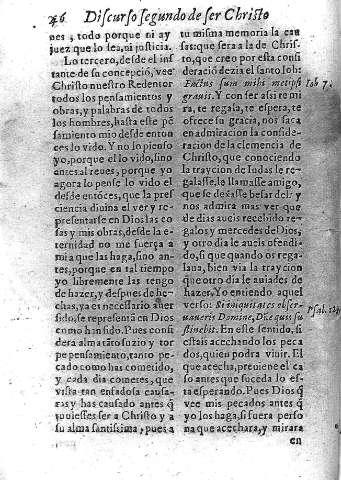 46 Discurso segundo de ser Christo
nes, todo porque ni ay
juez que lo sea, ni justicia.
Lo tercero, desde el ins
tante de su concepciõ, vee
Christo nuestro Redentor
todos los pensamientos y
obras, y palabras de todos
los hombres, hasta este pẽ
samiento mio desde enton
ces lo vido. Y no lo pienso
yo, porque el lo vido, sino
antes al reues, porque yo
agora lo pense lo vido el
desde entõces, que la pres
ciencia diuina el ver y re
presentarse en Dios las co
sas y mis obras, desde la e-
ternidad no me fuerça a
mi a que las haga, sino an
tes, porque en tal tiempo
yo libremente las tengo
de hazer, y despues de he-
chas, ya es necessario auer
sido, se representã en Dios
como han sido. Pues consi
dera alma tãto suzio y tor
pe pensamiento, tanto pe-
cado como has cometido,
y cada dia cometes, que
vista tan enfadosa causa-
ras y has causado antes q̃
pudiesses ser a Christo y a
su alma santissima, pues a
tu misma memoria la cau
sas: que sera a la de Chris-
to, que creo por esta consi
deració dezia el santo Iob:
Factus sum mihi metipsi
grauis. Y con ser assi te mi
ra, te regala, te espera, te
ofrece su gracia, nos saca
en admiracion la conside-
racion de la clemencia de
Christo, que conociendo
la trayción de Iudas le re-
galasse, le llamasse amigo,
que se dexasse besar del: y
nos admira mas ver que
de dias aueis recebido re-
galos y mercedes de Dios,
y otro dia le aueis ofendi-
do, si que quando os rega-
laua, bien via la trayción
que otro dia le auiades de
hazer. Yo entiendo aquel
verso: Si iniquitates obser-
uaueris Domine, Dñe quis su
stinebit. En este sentido, si
estais acechando los peca
dos, quien podra viuir. El
que acecha, preuiene el ca
so antes que suceda lo es-
ta esperando. Pues Dios q̃
vee mis pecados antes q̃
yo los haga, si fuera perso
na que acechara, y mirara
en
Iob 7.